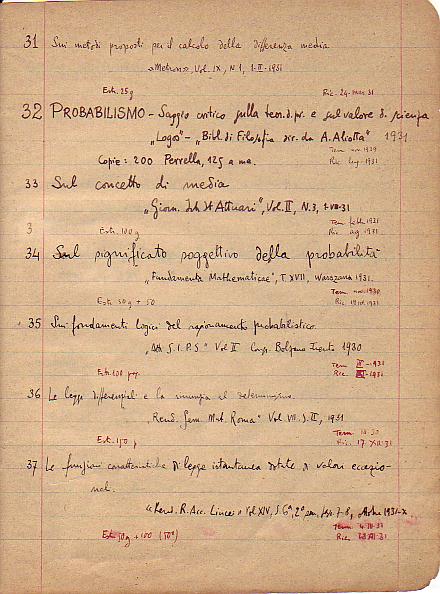 31 Sui metodi proposti per il calcolo della differenza media
«Metron», Vol. IX, N. 1, 1-II-1931
Estr. 25 g
Ric. 24-mar. 31
32 PROBABILISMO - Saggio critico sulla teor. d. pr. e sul valore d. scienza
„Logos" - „Bibl. di Filosofia dir. da A. Aliotta" 1931
Term nov. 1929
Copie: 200 Perrella, 125 a me.
Ric. lug. 1931
33 Sul concetto di media
„Giorn. Ist. It. Attuari", Vol. II, N. 3, 1-VII-31
Term febb 1931
3 Estr. 100 g
Ric ag. 1931
34 Sul significato soggettivo della probabilità
„Fundamenta Mathematicae", T XVII, Warszawa 1931.
Term. nov. 1930
Estr. 50 g + 50
Ric. 1931
35 Sui fondamenti logici del ragionamento probabilistico
„Atti S.I.P.S" Vol II Congr. Bolzano Trento 1930
Term -1931
Estr. 100
Ric. -1931
36 Le leggi differenziali e la rinuncia al determinismo.
„Rend. Sem. Mat. Roma" Vol. VII. S. II, 1931
Term
Estr. 150
Ric. 17-XII-31
37 Le funzioni caratteristiche di legge istantanea dotate di valori eccezio-
nali.
«Rend. R. Acc. Lincei» Vol XIV, S. 6ª, 2º sem, fasc. 7-8, 1931-X
Term. -31
Estr. 50 g + 100
Ric. -31